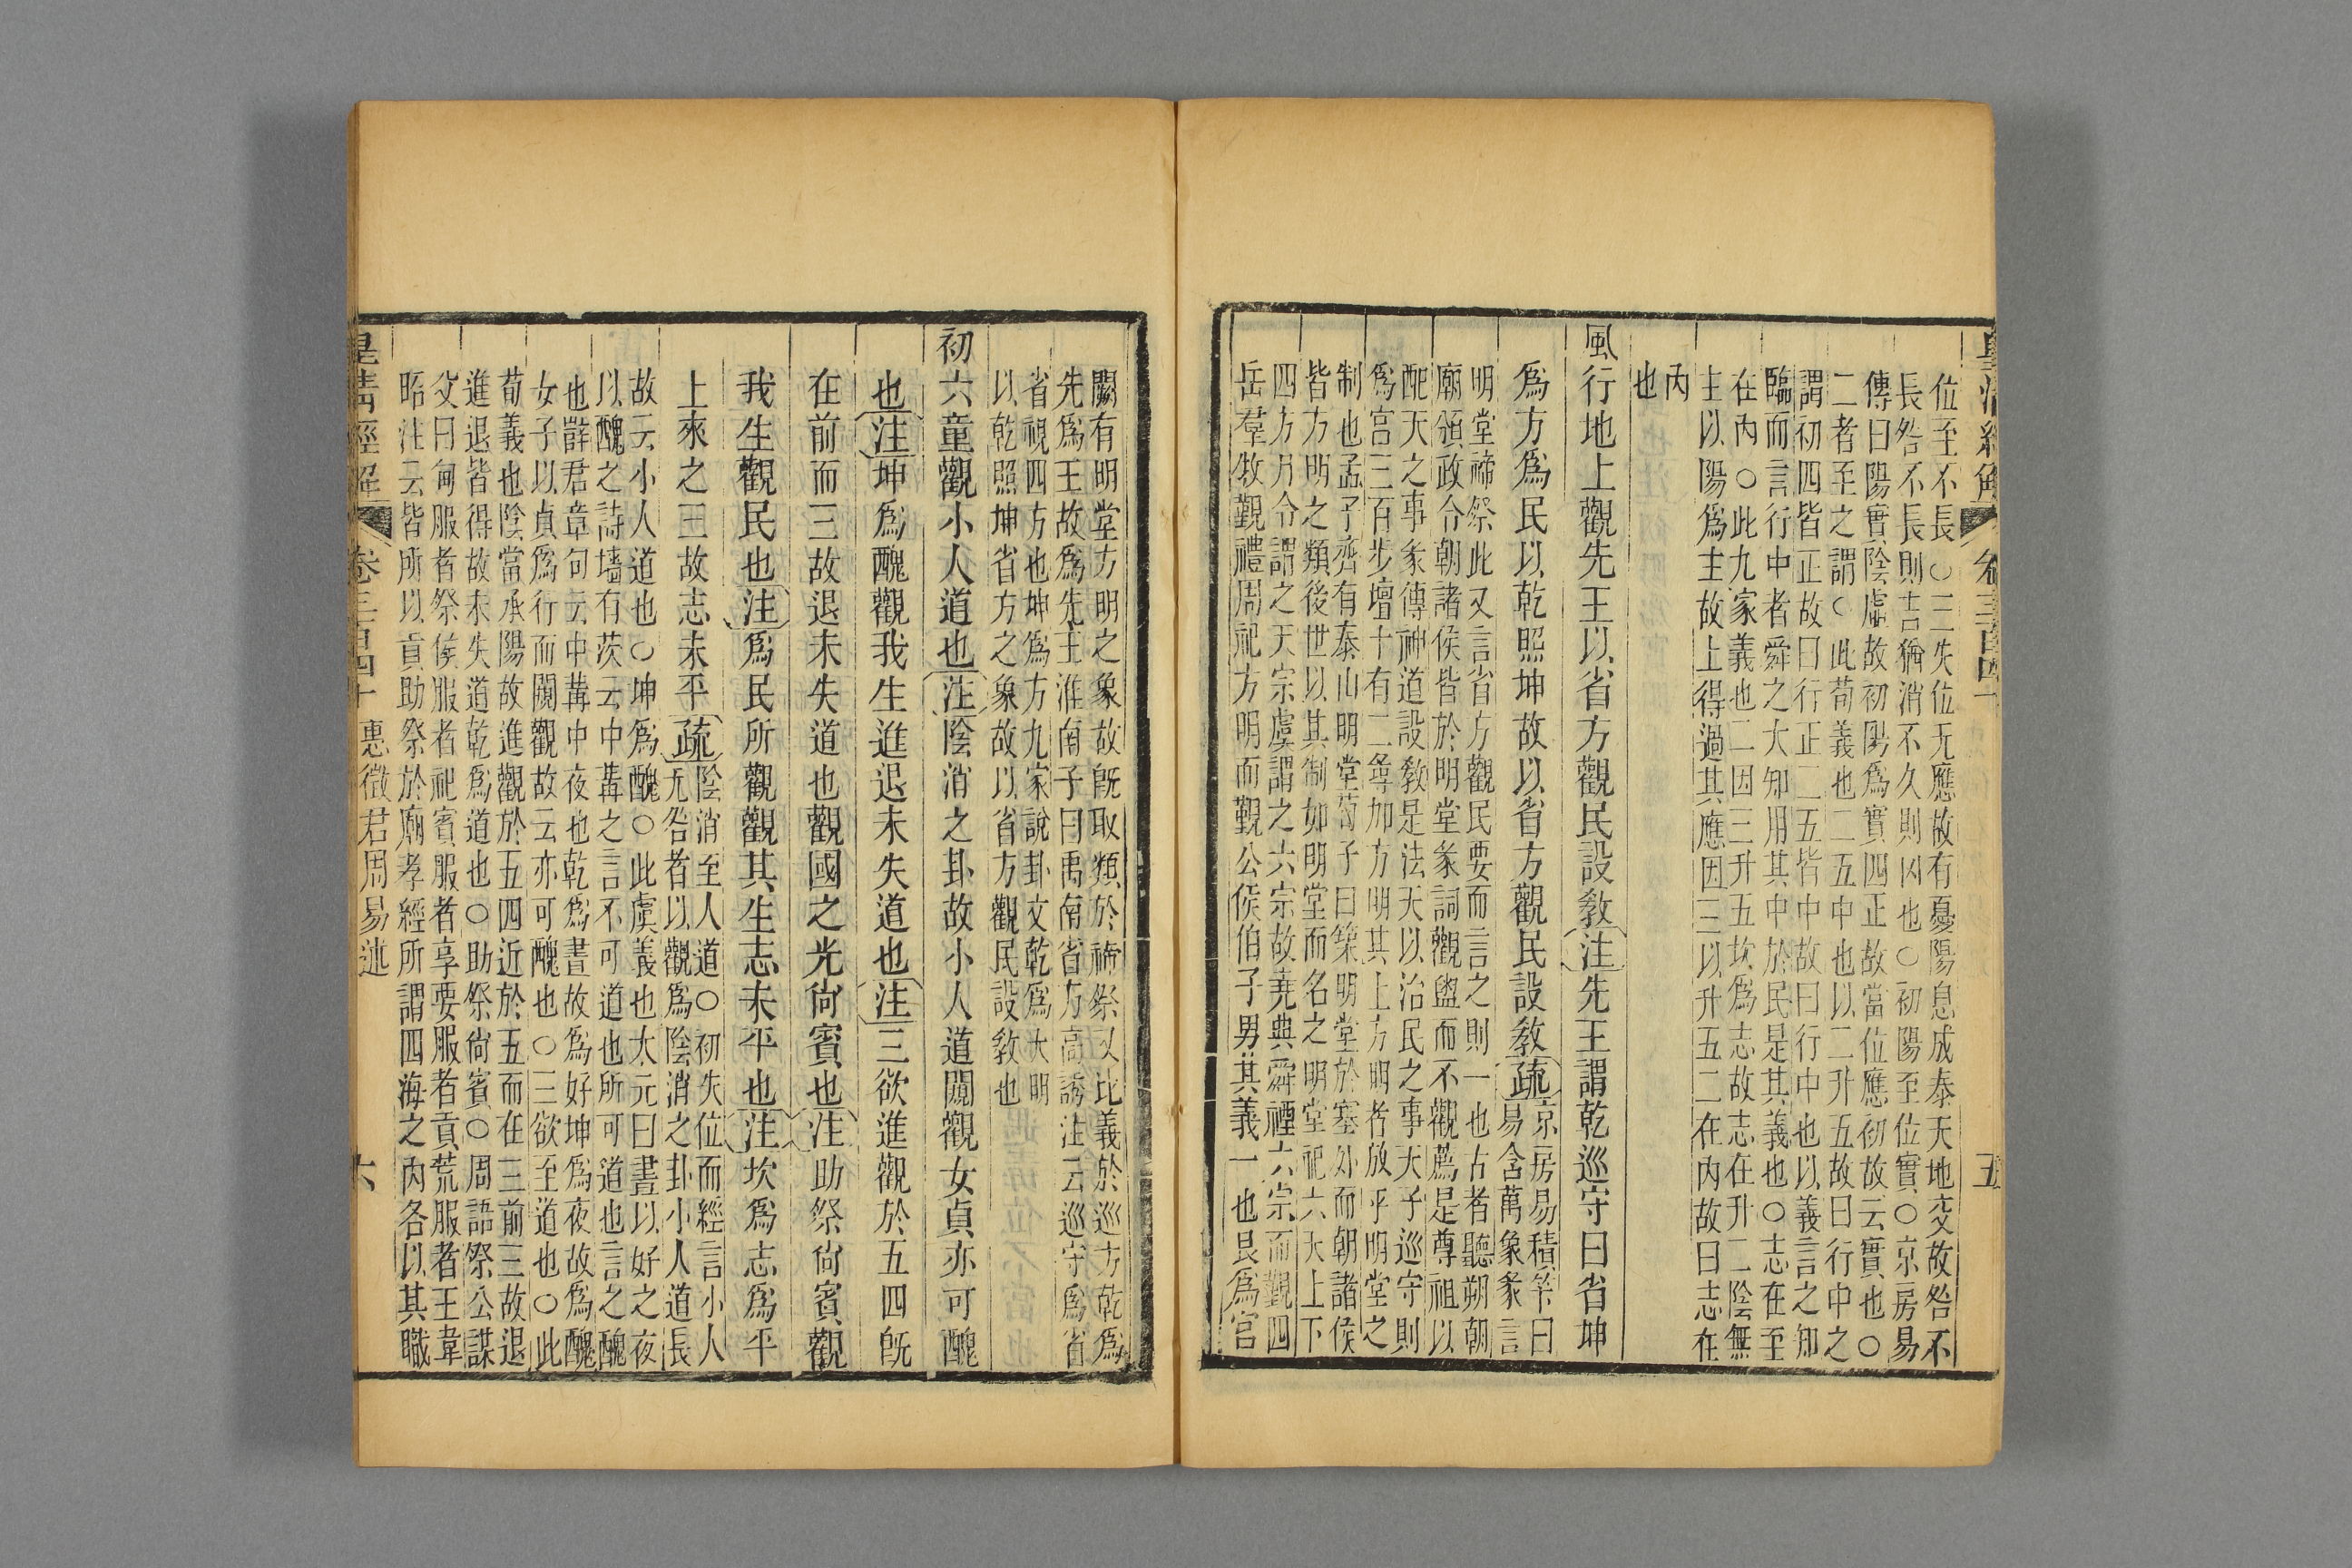 皇清經解 卷三百四十 五
位至不長○三失位无應故有憂陽息成泰天地交故咎不
長咎不長則吉猶消不久則凶也○初陽至位實○京房易
傳曰陽實陰虛故初陽爲實四正故當位應初故云實也○
二者至之謂○此荀義也二五中也以二升五故曰行中之
謂初四皆正故曰行正二五皆中故曰行中也以義言之知
臨而言行中者舜之大知用其中於民是其義也○志在至
在內○此九家義也二因三升五坎爲志故志在升二陰無
主以陽爲主故上得過其應因三以升五二在內故曰志在
內
也
風行地上觀先王以省方觀民設教注先王謂乾巡守曰省坤
爲方爲民以乾照坤故以省方觀民設教疏
京房易積筭曰
易含萬象彖言
明堂禘祭此又言省方觀民要而言之則一也古者聽朔朝
廟頒政令朝諸侯皆於明堂彖詞觀盥而不觀薦是尊祖以
配天之事彖傳神道設教是法天以治民之事天子巡守則
爲宮三百步壇十有二尋加方明其上方明者放乎明堂之
制也孟子齊有泰山明堂荀子曰築明堂於塞外而朝諸侯
皆方明之類後世以其制如明堂而名之明堂祀六天上下
四方月令謂之天宗虞謂之六宗故堯典舜禋六宗而覲四
岳羣牧覲禮周祀方明而覲公侯伯子男其義一也艮爲宮
闕有明堂方明之象故旣取類於禘祭又比義於巡方乾爲
先爲王故爲先王淮南子曰禹南省方高誘注云巡守爲省
省視四方也坤爲方九家說卦文乾爲大明
以乾照坤省方之象故以省方觀民設教也
初六童觀小人道也注陰消之卦故小人道闚觀女貞亦可醜
也注坤爲醜觀我生進退未失道也注三欲進觀於五四旣
在前而三故退未失道也觀國之光尙賓也注助祭尙賓觀
我生觀民也注爲民所觀觀其生志未平也注坎爲志爲平
上來之三故志未平疏
陰消至人道○初失位而經言小人
无咎者以觀爲陰消之卦小人道長
故云小人道也○坤爲醜○此虞義也太元曰晝以好之夜
以醜之詩墻有茨云中冓之言不可道也所可道也言之醜
也辥君章句云中冓中夜也乾爲晝故爲好坤爲夜故爲醜
女子以貞爲行而闚觀故云亦可醜也○三欲至道也○此
荀義也陰當承陽故進觀於五四近於五而在三前三故退
進退皆得故未失道乾爲道也○助祭尙賓○周語祭公謀
父曰甸服者祭侯服者祀賓服者享要服者貢荒服者王韋
昭注云皆所以貢助祭於廟孝經所謂四海之內各以其職
皇清經解 卷三百四十 惠徵君周易述 六